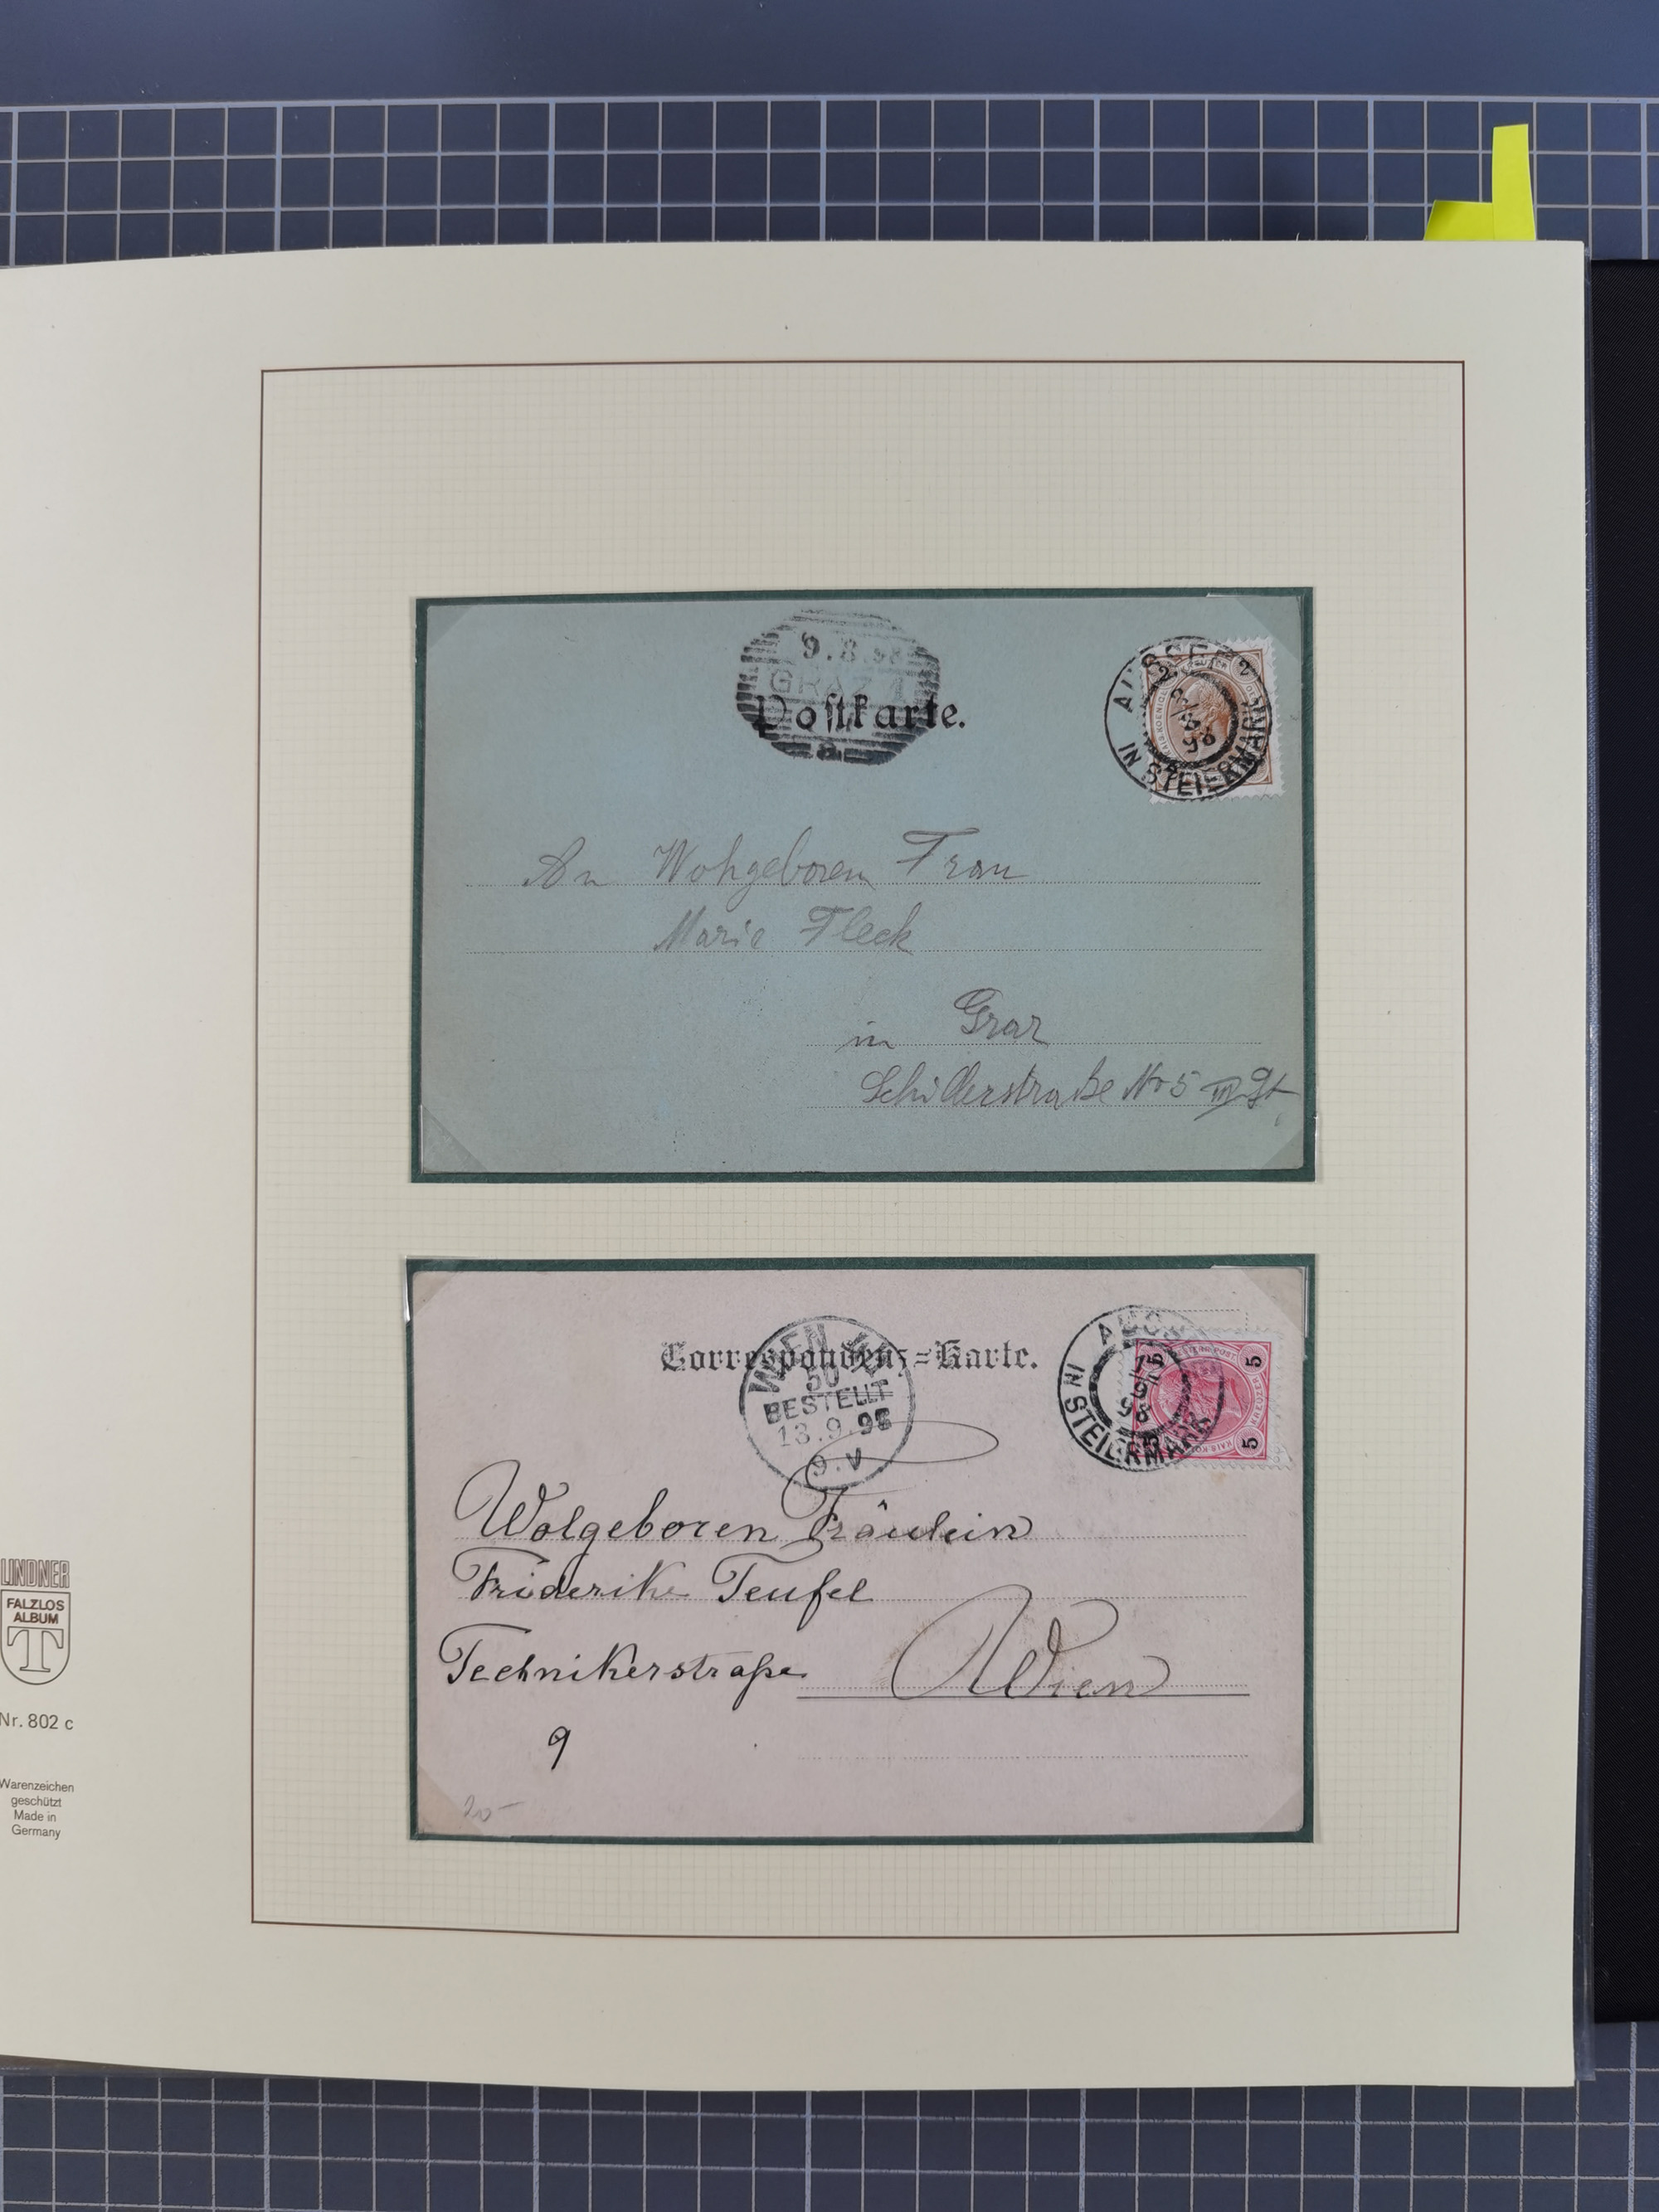 9.8.98
GRAZ 1
Postkarte.
AUSSEE
IN STEIERMARK
8/8
98
2
2
An Wohgeboren Frau
Marie Fleck
in Graz
Schillerstraße No 5 III. St
Correspondenz=Karte.
WIEN
50
BESTELLT
13.9.98
9.V
IN STEIERMARK
98
5
5
5
Wolgeboren Fräulein
Friderike Teufel
Technikerstraße Wien
9
LINDNER
FALZLOS
ALBUM
T
Nr. 802 c
Warenzeichen
geschützt
Made in
Germany